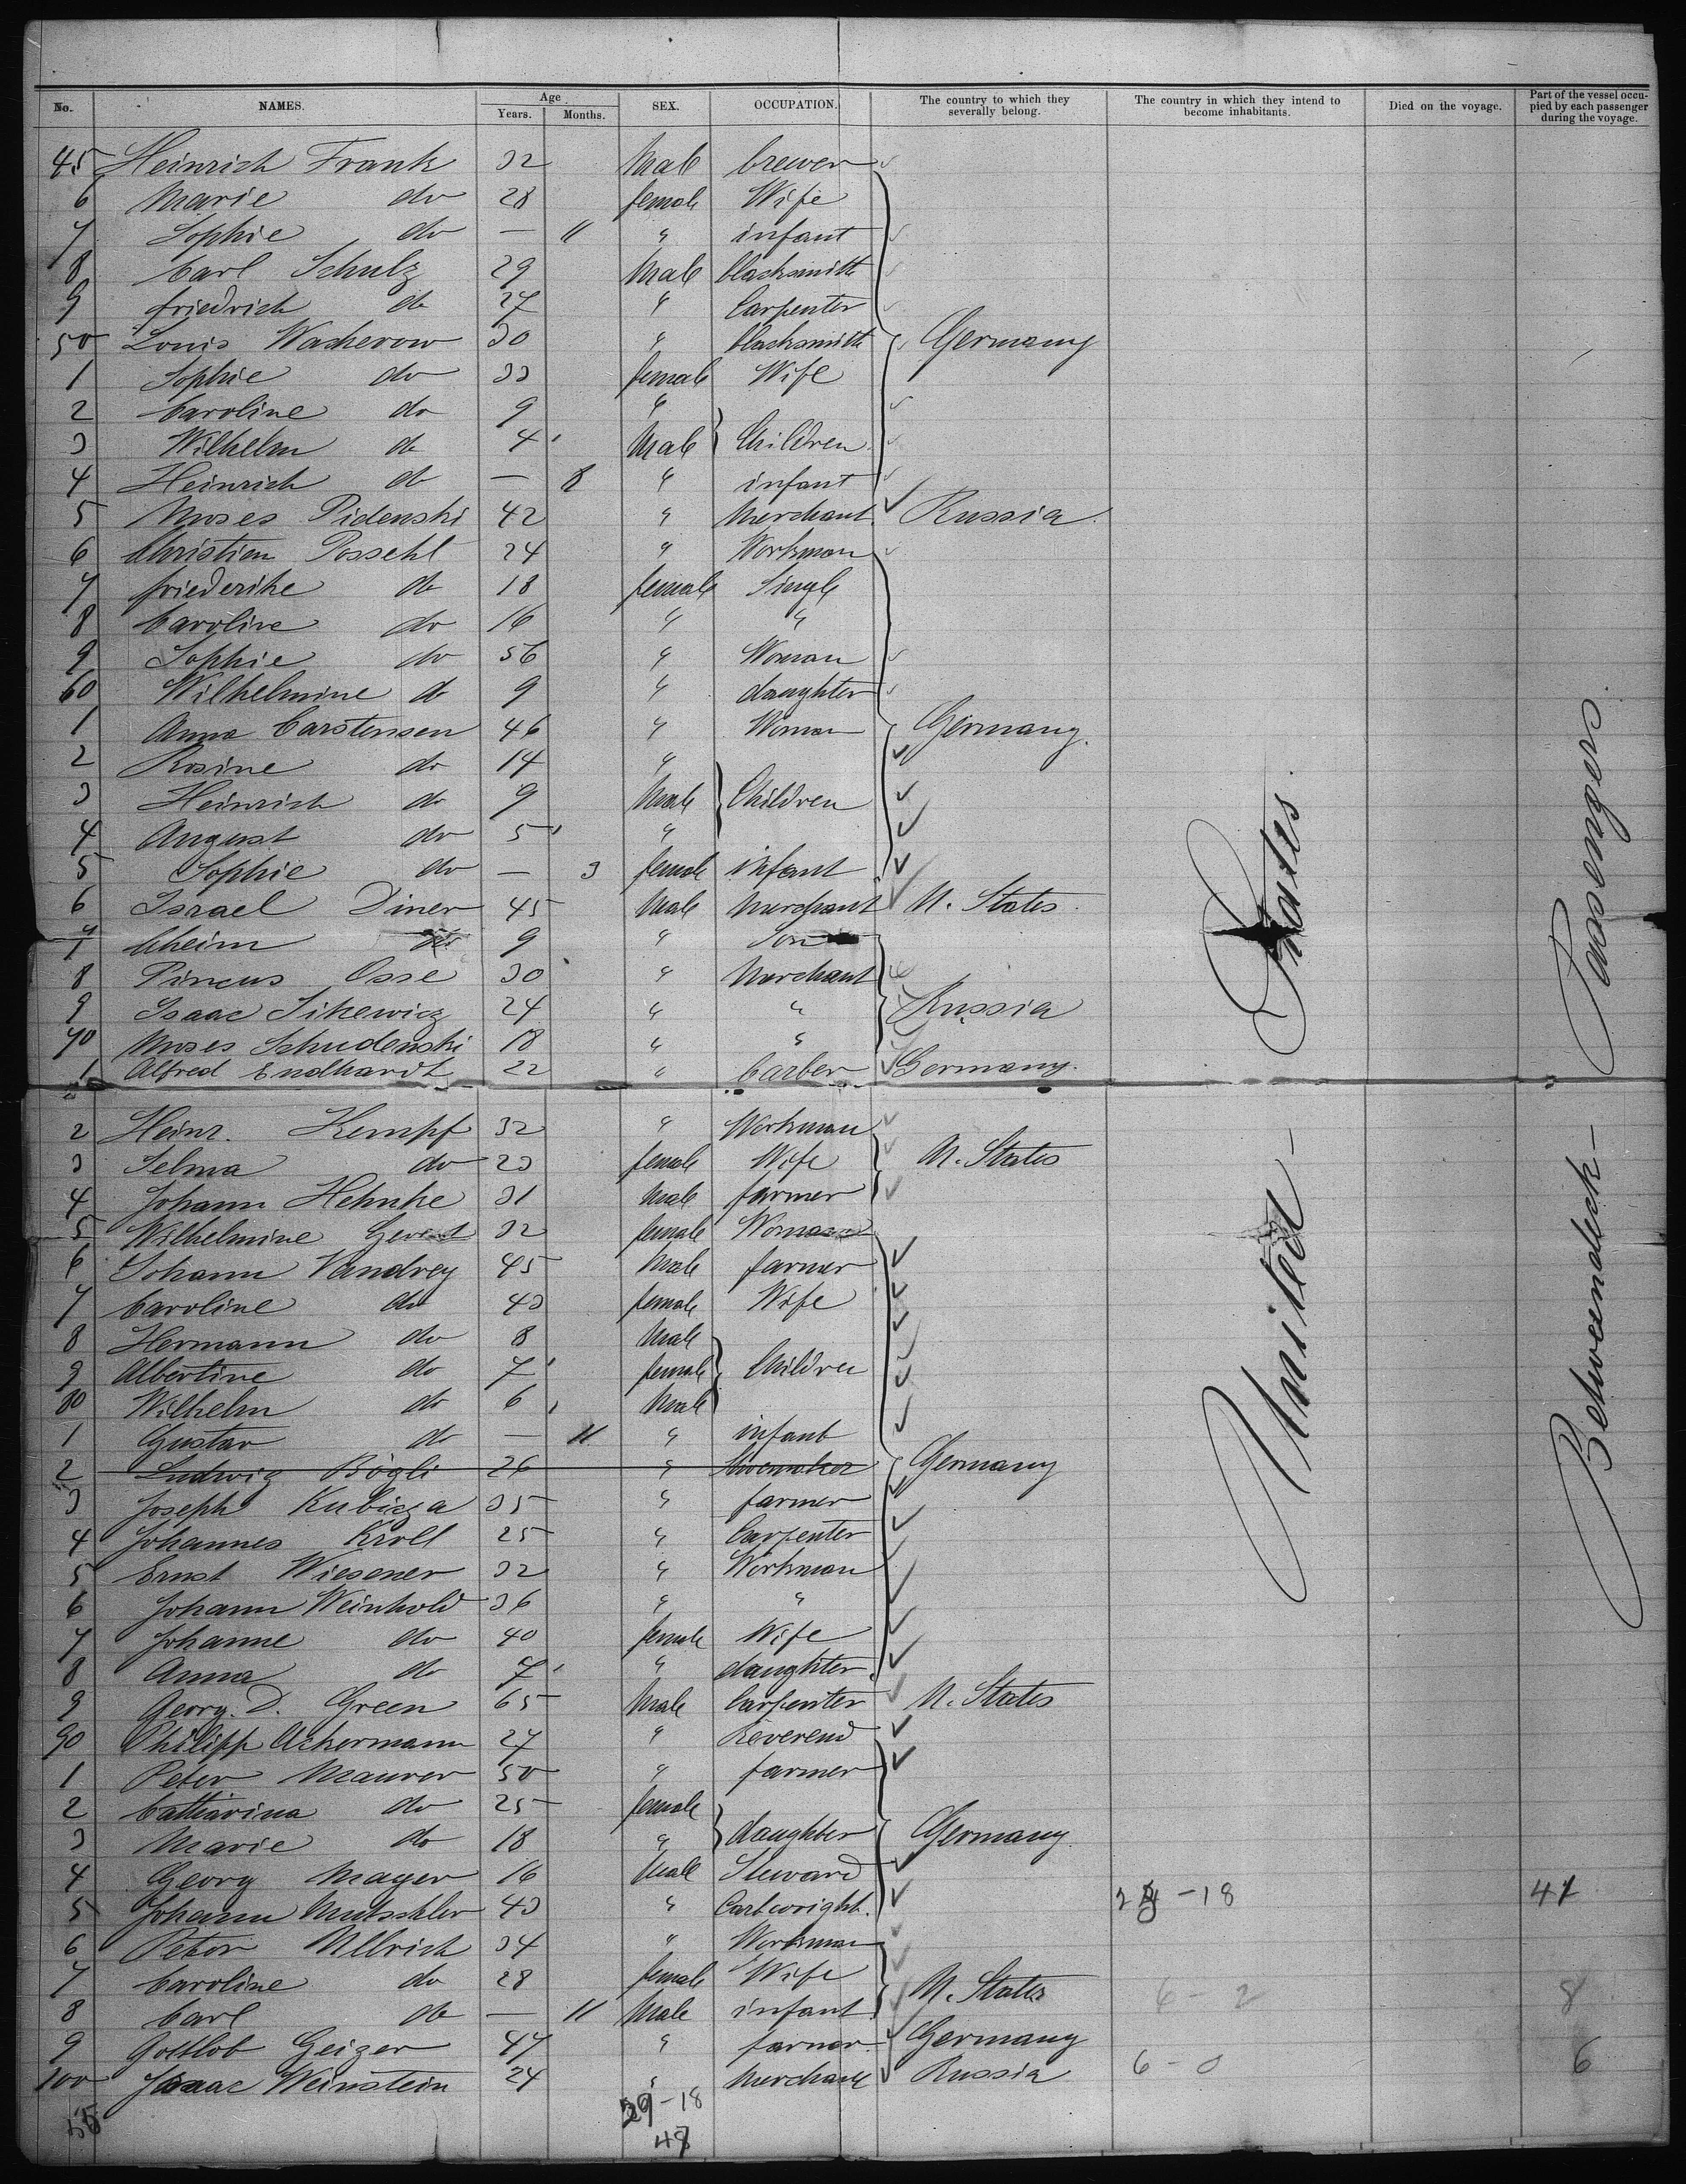 No. NAMES. Age Years. Months. SEX. OCCUPATION. The country to which they severally belong. The country in which they intend to become inhabitants. Died on the voyage. Part of the vessel occupied by each passenger during the voyage.
45 Heinrich Frank 32 Male brewer
6 Marie do 28 female Wife
7 Sophie do — 11 " infant
8 Carl Schulz 29 Male blacksmith
9 friedrich do 27 " Carpenter
50 Louis Wacherow 30 " blacksmith Germany
1 Sophie do 33 female Wife
2 Caroline do 9 "
3 Wilhelm do 4 Male Children
4 Heinrich do — 8 " infant
5 Moses Pidenski 42 " Merchant Russia
6 Christian Possehl 24 " Workman
7 friederike do 18 female Single
8 Caroline do 16 " "
9 Sophie do 56 " Woman
60 Wilhelmine do 9 " daughter
1 Anna Carstensen 46 " Woman Germany.
2 Rosine do 14 "
3 Heinrich do 9 Male Children
4 August do 5 "
5 Sophie do — 3 female infant
6 Israel Diner 45 Male Merchant U. States
7 Cheim do 9 " Son
8 Pincus Osse 30 " Merchant
9 Isaac Sikewicz 24 " " Russia
70 Moses Schudenski 18 " "
1 Alfred Endhardt 22 " barber Germany.
2 Heinr. Kempf 32 " Workman
3 Selma do 23 female Wife U. States
4 Johann Hehnke 31 Male farmer
5 Wilhelmine 32 female Woman
6 Johann Vandrey 45 Male farmer
7 Caroline do 43 female Wife
8 Hermann do 8 Male
9 Albertine do 7 female Children
80 Wilhelm do 6 Male
1 Gustav do — 11 " infant
2 Ludwig Bögli 26 " Shoemaker Germany
3 Joseph Kubizza 35 " farmer
4 Johannes Kroll 25 " Carpenter
5 Ernst Wiesener 32 " Workman
6 Johann Weinhold 36 " "
7 Johanne do 40 female Wife
8 Anna do 7 " daughter
9 Georg. D. Green 65 Male Carpenter U. States
90 Philipp Ackermann 27 " Reverend
1 Peter Maurer 50 " farmer
2 Catharina do 25 female
3 Marie do 18 " daughter Germany.
4 Georg Mayer 16 Male Steward
5 Johann Mutschler 43 " Cartwright.
6 Peter Ullrich 34 " Workman
7 Caroline do 28 female Wife U. States
8 Carl do — 11 Male infant
9 Gottlob Geizer 47 " farmer Germany
100 Isaac Weinstein 24 " Merchant Russia
United States.
Betweendeck – Passengers
-18 41
6-2 8
6-0 6
-18